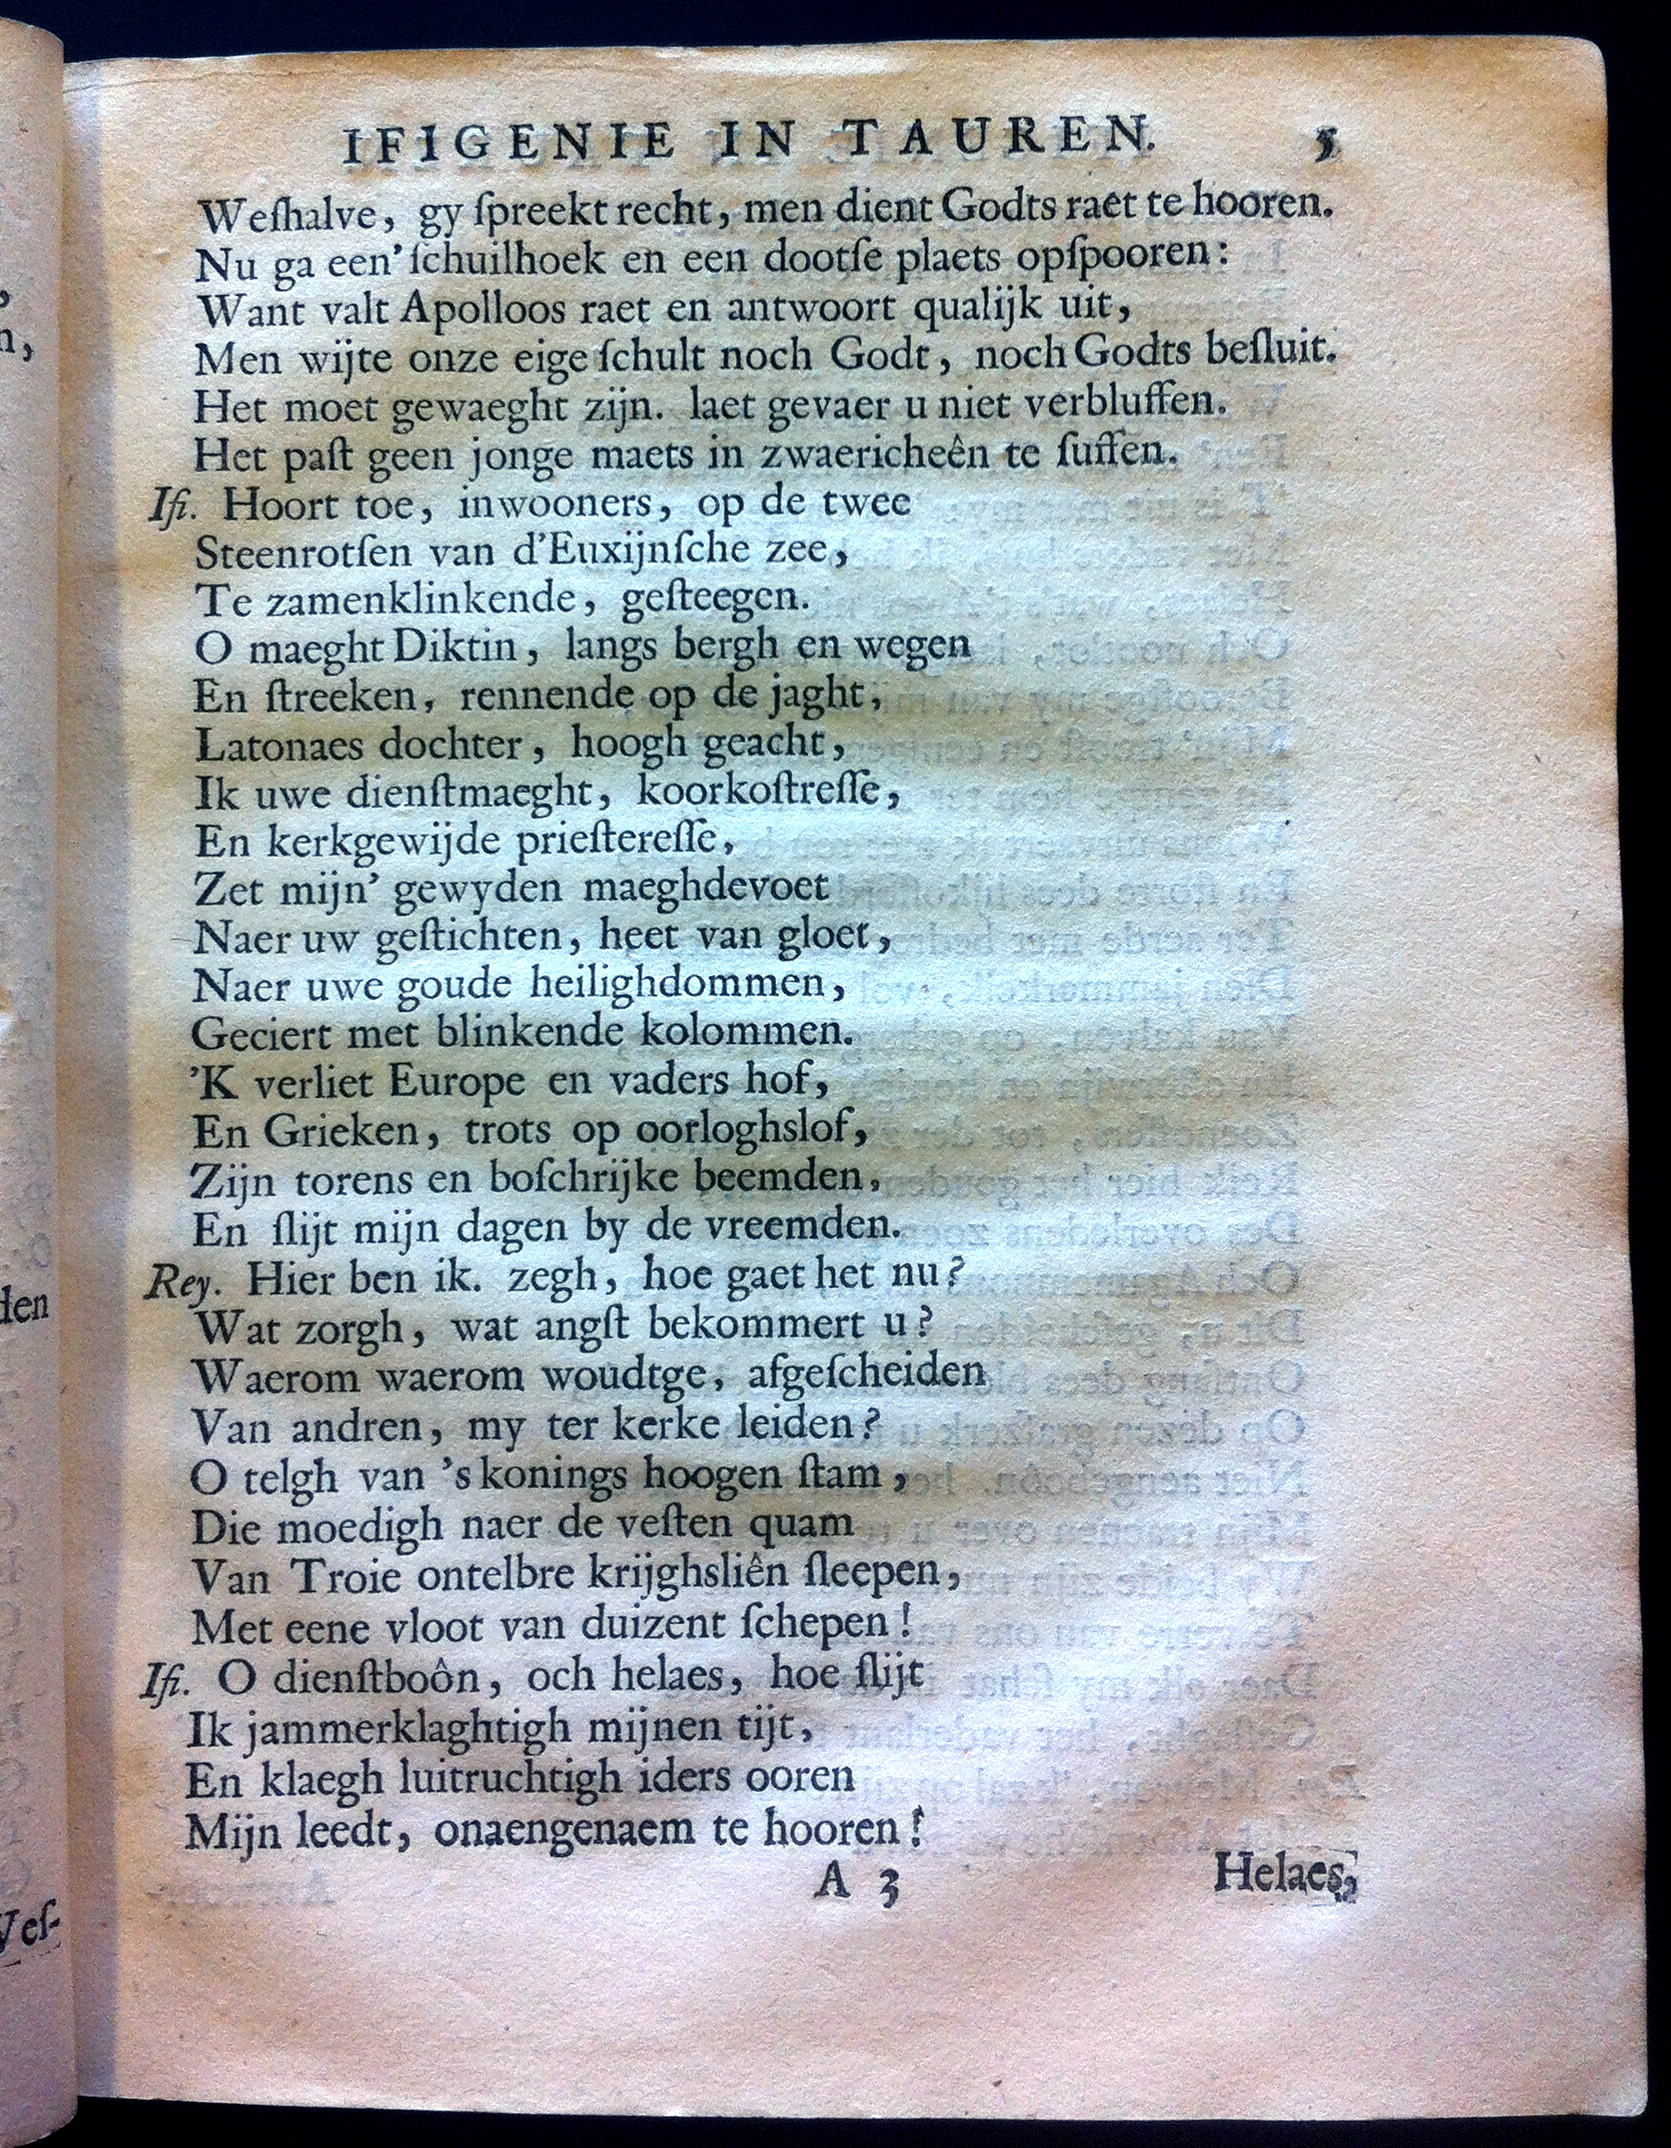 IFIGENIE IN TAUREN. 5
Weſhalve, gy ſpreekt recht, men dient Godts raet te hooren.
Nu ga een' ſchuilhoek en een dootſe plaets opſpooren:
Want valt Apolloos raet en antwoort qualijk uit,
Men wijte onze eige ſchult noch Godt, noch Godts beſluit.
Het moet gewaeght zijn. laet gevaer u niet verbluffen.
Het paſt geen jonge maets in zwaericheên te ſuffen.
Ifi. Hoort toe, inwooners, op de twee
Steenrotſen van d'Euxijnſche zee,
Te zamenklinkende, geſteegen.
O maeght Diktin, langs bergh en wegen
En ſtreeken, rennende op de jaght,
Latonaes dochter, hoogh geacht,
Ik uwe dienſtmaeght, koorkoſtreſſe,
En kerkgewijde prieſtereſſe,
Zet mijn' gewyden maeghdevoet
Naer uw geſtichten, heet van gloet,
Naer uwe goude heilighdommen,
Geciert met blinkende kolommen.
'K verliet Europe en vaders hof,
En Grieken, trots op oorloghslof,
Zijn torens en boſchrijke beemden,
En ſlijt mijn dagen by de vreemden.
Rey. Hier ben ik. zegh, hoe gaet het nu?
Wat zorgh, wat angſt bekommert u?
Waerom waerom woudtge, afgeſcheiden
Van andren, my ter kerke leiden?
O telgh van 's konings hoogen ſtam,
Die moedigh naer de veſten quam
Van Troie ontelbre krijghsliên ſleepen,
Met eene vloot van duizent ſchepen!
Ifi. O dienſtboôn, och helaes, hoe ſlijt
Ik jammerklaghtigh mijnen tijt,
En klaegh luitruchtigh iders ooren
Mijn leedt, onaengenaem te hooren!
A 3 Helaes,
den
Veſ-